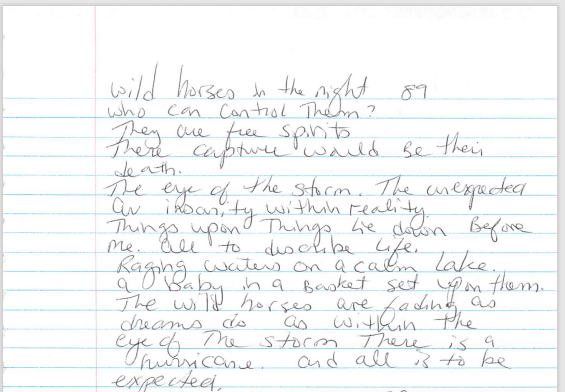 wild horses in the night 89
who can control Them?
They are free spirits
There capture would be their
death.
The eye of the storm. The unexpected
insanity within reality.
Things upon Things lie down Before
me. all to describe Life.
Raging waters on a calm Lake.
a Baby in a Basket set upon them.
The wild horses are fading as
dreams do as within the
eye of The storm There is a
hurricane. and all is to be
expected.